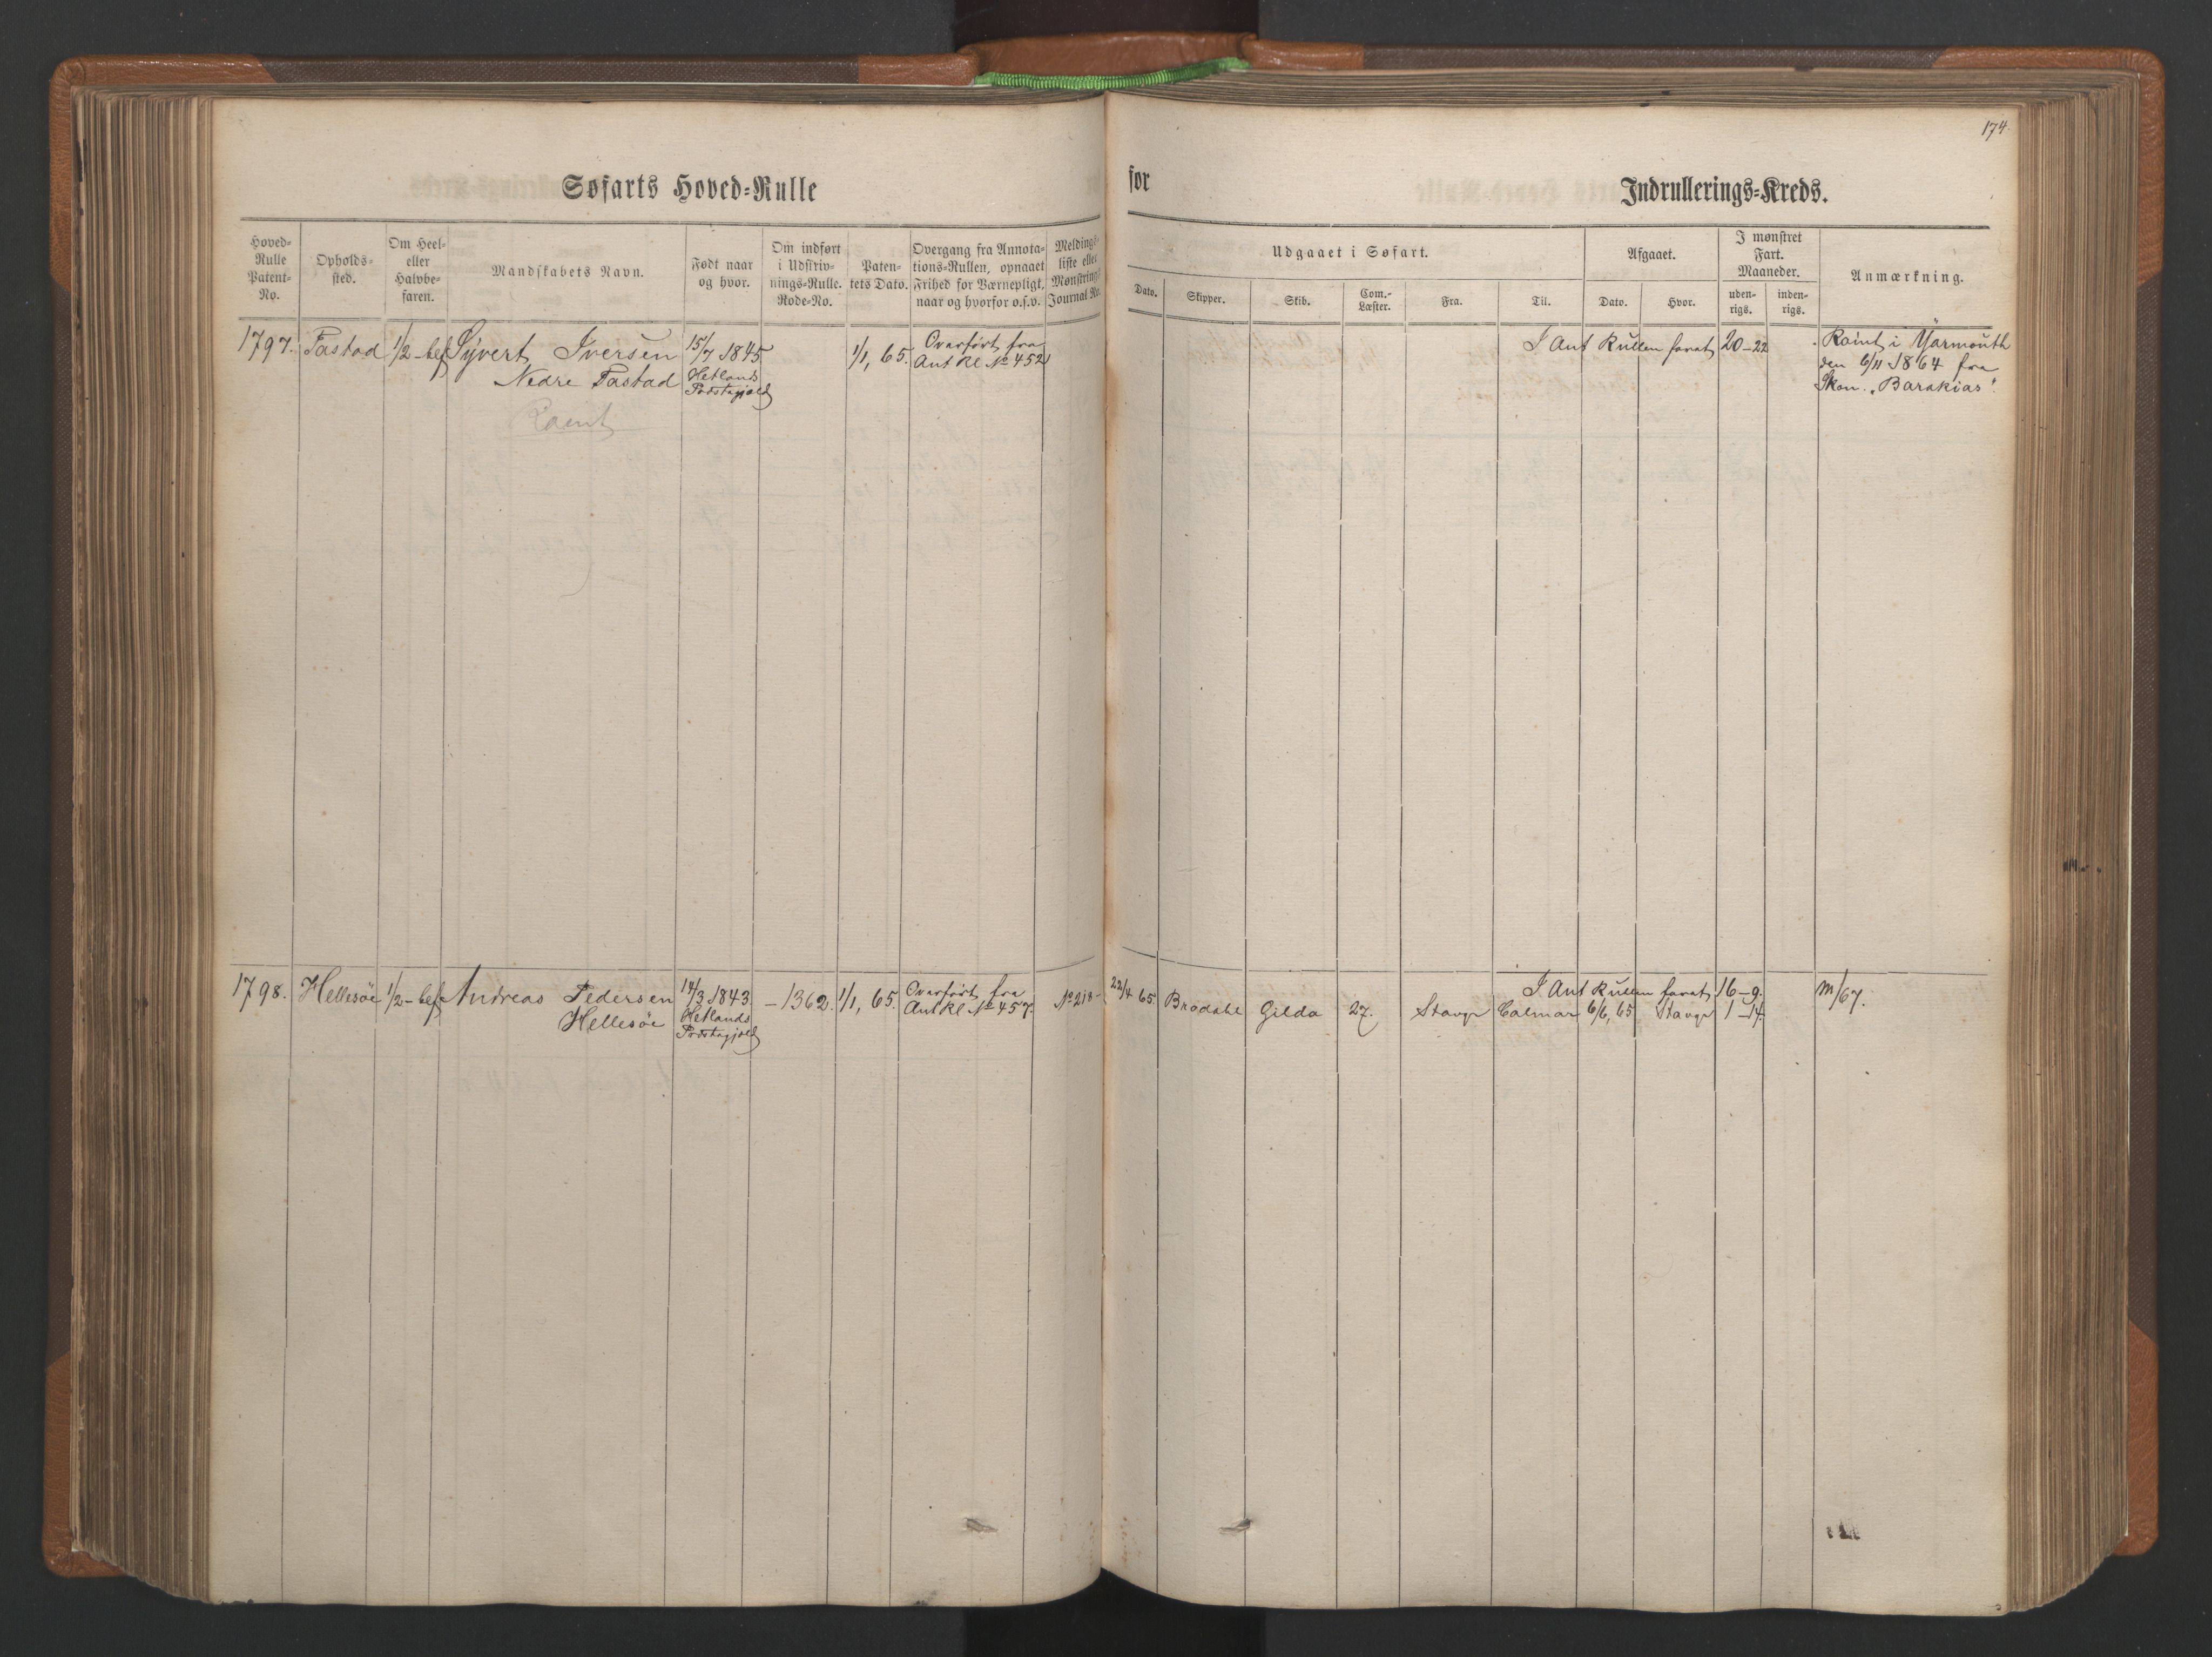 174.
Søfarts Hoved-Rulle
for
Indrullerings-Kreds.
Hoved-Rulle Patent-No.
Opholds-sted.
Om Heel- eller Halvbe-faren.
Mandskabets Navn.
Født naar og hvor.
Om indført i Udskriv-nings-Rulle. Rode-No.
Paten-tets Dato.
Overgang fra Annota-tions-Rullen, opnaaet Frihed for Værnepligt, naar og hvorfor o.s.v.
Meldings-liste eller Mønstrings Journal No.
Udgaaet i Søfart.
Dato.
Skipper.
Skib.
Com.-Læster.
Fra.
Til.
Afgaaet.
Dato.
Hvor.
I mønstret Fart. Maaneder.
uden-rigs.
inden-rigs.
Anmærkning.
1797. Tastad 1/2-bef Syvert Iversen 15/7 1845 1/1, 65. Overført fra I Ant Rullen faret 20-22 Rømt i Yarmouth
Nedre Tastad Hetlands Ant Rl No 452 den 6/11 1864 fra
Præstegjeld Skon. "Barakias".
Rømt
1798. Hellesöe 1/2-bef Andreas Pedersen 14/3 1843 -1362. 1/1, 65. Overført fra I Ant Rullen faret 16-9.
Hellesöe Hetlands Ant Rl No 457. No 218- 22/4 65 Bradahl Gilda 27. Stavgr Calmar 6/6, 65 Stavgr 1-14. m/67.
Præstegjeld